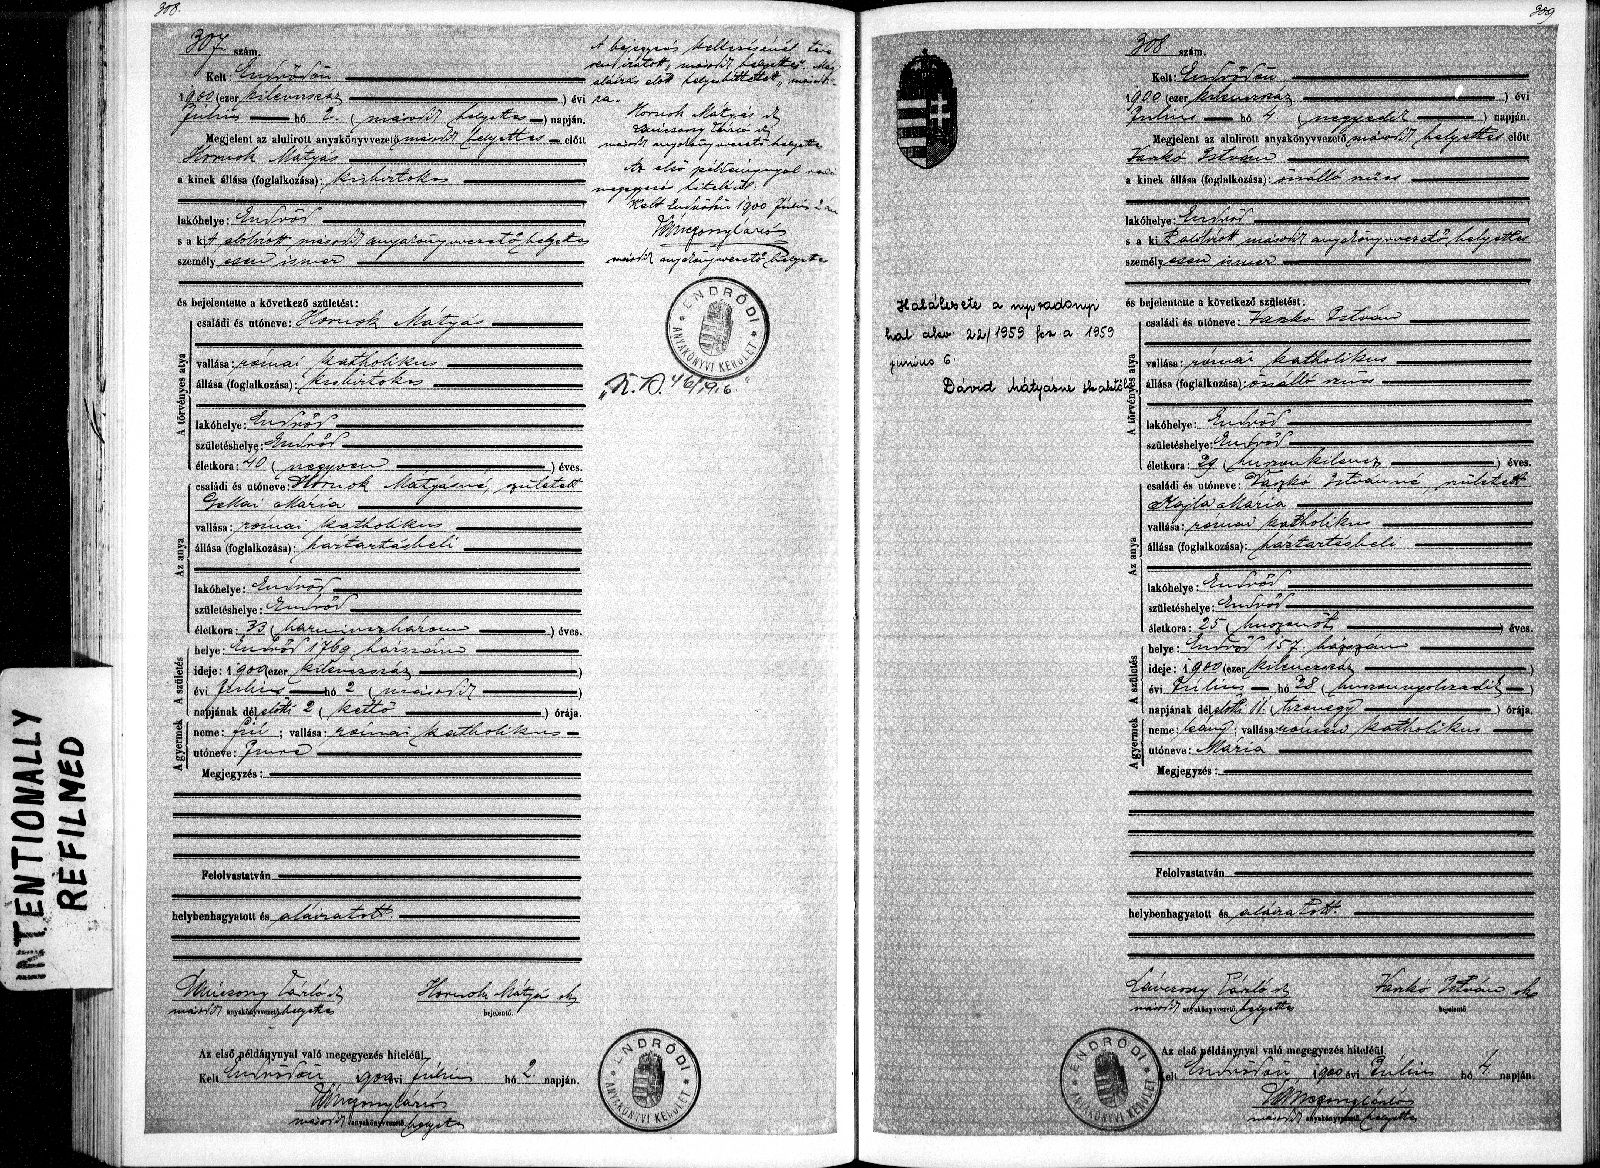 308
307 szám.
Kelt: Endrődön
1900 (ezer kilenczszáz) évi
Július hó 2. (második helyettes) napján.
Megjelent az alulirott anyakönyvvezető másod helyettes előtt
Hornok Mátyás
a kinek állása (foglalkozása): kisbirtokos
lakóhelye: Endrőd
s a kit alulirott másod anyakönyvvezető helyettes
személyesen ismer
és bejelentette a következő születést:
A törvényes atya
családi és utóneve: Hornok Mátyás
vallása: római katholikus
állása (foglalkozása): kisbirtokos
lakóhelye: Endrőd
születéshelye: Endrőd
életkora: 40 (negyven) éves.
Az anya
családi és utóneve: Hornok Mátyásné, született
Gellai Mária
vallása: római katholikus
állása (foglalkozása): háztartásbeli
lakóhelye: Endrőd
születéshelye: Endrőd
életkora: 33 (harminczhárom) éves.
A születés
helye: Endrőd 1769 házszám
ideje: 1900 (ezer kilenczszáz)
évi Július hó 2 (második)
napjának dél előtti 2 (kettő) órája.
A gyermek
neme: fiú; vallása: római katholikus
utóneve: Imre
Megjegyzés:
Felolvastatván
helybenhagyatott és aláiratott
Hornok Mátyás
másod anyakönyvvezető helyettes
bejelentő.
Az első példánynyal való megegyezés hiteléül
Kelt Endrődön 1900 évi július hó 2 napján.
másod anyakönyvvezető helyettes
ENDRŐDI
ANYAKÖNYVI KERÜLET
A bejegyzés
helyettes
aláirás előtt
Hornok Mátyás
másod anyakönyvvezető helyettes
Az első példánynyal való
megegyezés hiteléül.
Kelt Endrődön 1900 Július 2 án
másod anyakönyvvezető helyettes
ENDRŐDI
ANYAKÖNYVI KERÜLET
309
308 szám.
Kelt: Endrődön
1900 (ezer kilenczszáz) évi
Július hó 4 (negyedik) napján.
Megjelent az alulirott anyakönyvvezető másod helyettes előtt
Vaszkó István
a kinek állása (foglalkozása): önálló szűcs
lakóhelye: Endrőd
s a kit alulirott másod anyakönyvvezető helyettes
személyesen ismer
és bejelentette a következő születést:
A törvényes atya
családi és utóneve: Vaszkó István
vallása: római katholikus
állása (foglalkozása): önálló szűcs
lakóhelye: Endrőd
születéshelye: Endrőd
életkora: 29 (huszonkilencz) éves.
Az anya
családi és utóneve: Vaszkó Istvánné, született
Mária
vallása: római katholikus
állása (foglalkozása): háztartásbeli
lakóhelye: Endrőd
születéshelye: Endrőd
életkora: 25 (huszonöt) éves.
A születés
helye: Endrőd 157 házszám
ideje: 1900 (ezer kilenczszáz)
évi Július hó 28 (huszonnyolczadik)
napjának dél előtti 11 (tizenegy) órája.
A gyermek
neme: leány; vallása: római katholikus
utóneve: Mária
Megjegyzés:
Felolvastatván
helybenhagyatott és aláiratott.
Vaszkó István
másod anyakönyvvezető helyettes
bejelentő
Az első példánynyal való megegyezés hiteléül
Kelt Endrődön 1900 évi Július hó 4 napján.
másod anyakönyvvezető helyettes
ENDRŐDI
ANYAKÖNYVI KERÜLET
Halálesete a
hal. akv. 22/1959 a 1959
június 6.
Dávid Mátyásné
INTENTIONALLY
REFILMED